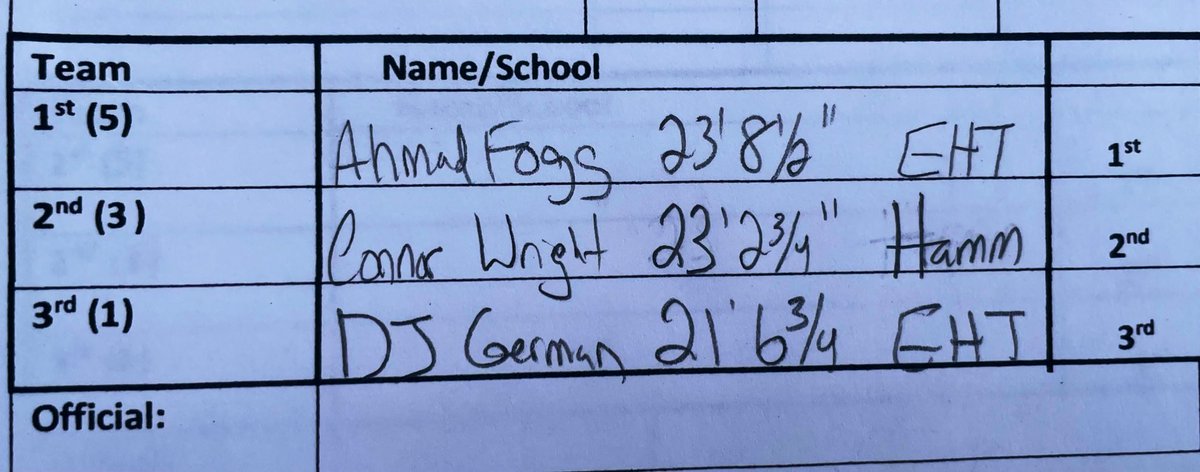 Team Name/School
1st (5) Ahmad Fogg 23' 8 1/2" EHT 1st
2nd (3) Connor Wright 23' 2 3/4" Hamm 2nd
3rd (1) DJ German 21' 6 3/4 EHT 3rd
Official: